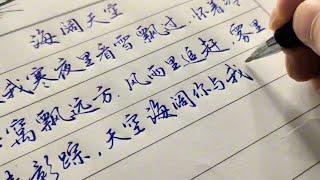 海阔天空
我寒夜里看雪飘过.怀着冷
窝飘远方.风雨里追赶.雾里
影踪.天空海阔你与我